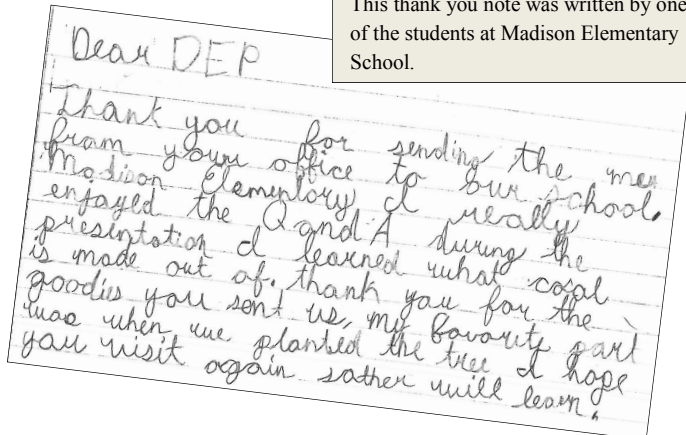 This thank you note was written by one
of the students at Madison Elementary
School.
Dear DEP
Thank you for sending the men
from youre office to our school.
Madison Elementory I really
enjayed the Q and A during the
presintation I learned what coal
is made out of. thank you for the
goodies you sent us, my favorite part
was when we planted the tree I hope
you visit again sather will learn.